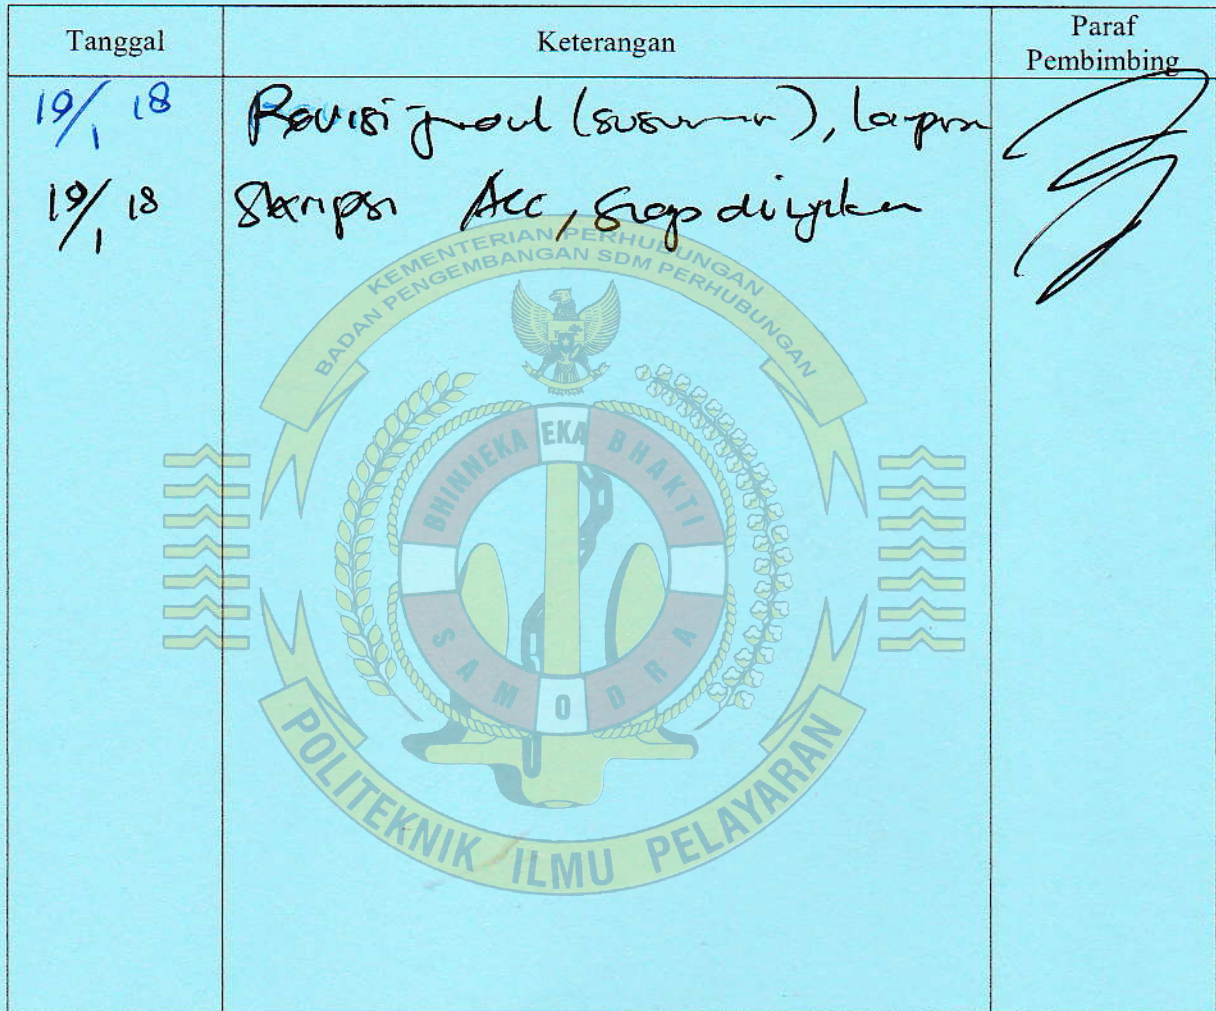 Tanggal
Keterangan
Paraf
Pembimbing
19/1 18
Revisi (susunan),
19/1 18
Skripsi Acc, siap diujikan
KEMENTERIAN PERHUBUNGAN
BADAN PENGEMBANGAN SDM PERHUBUNGAN
BHINNEKA EKA BHAKTI
SAMODRA
POLITEKNIK ILMU PELAYARAN